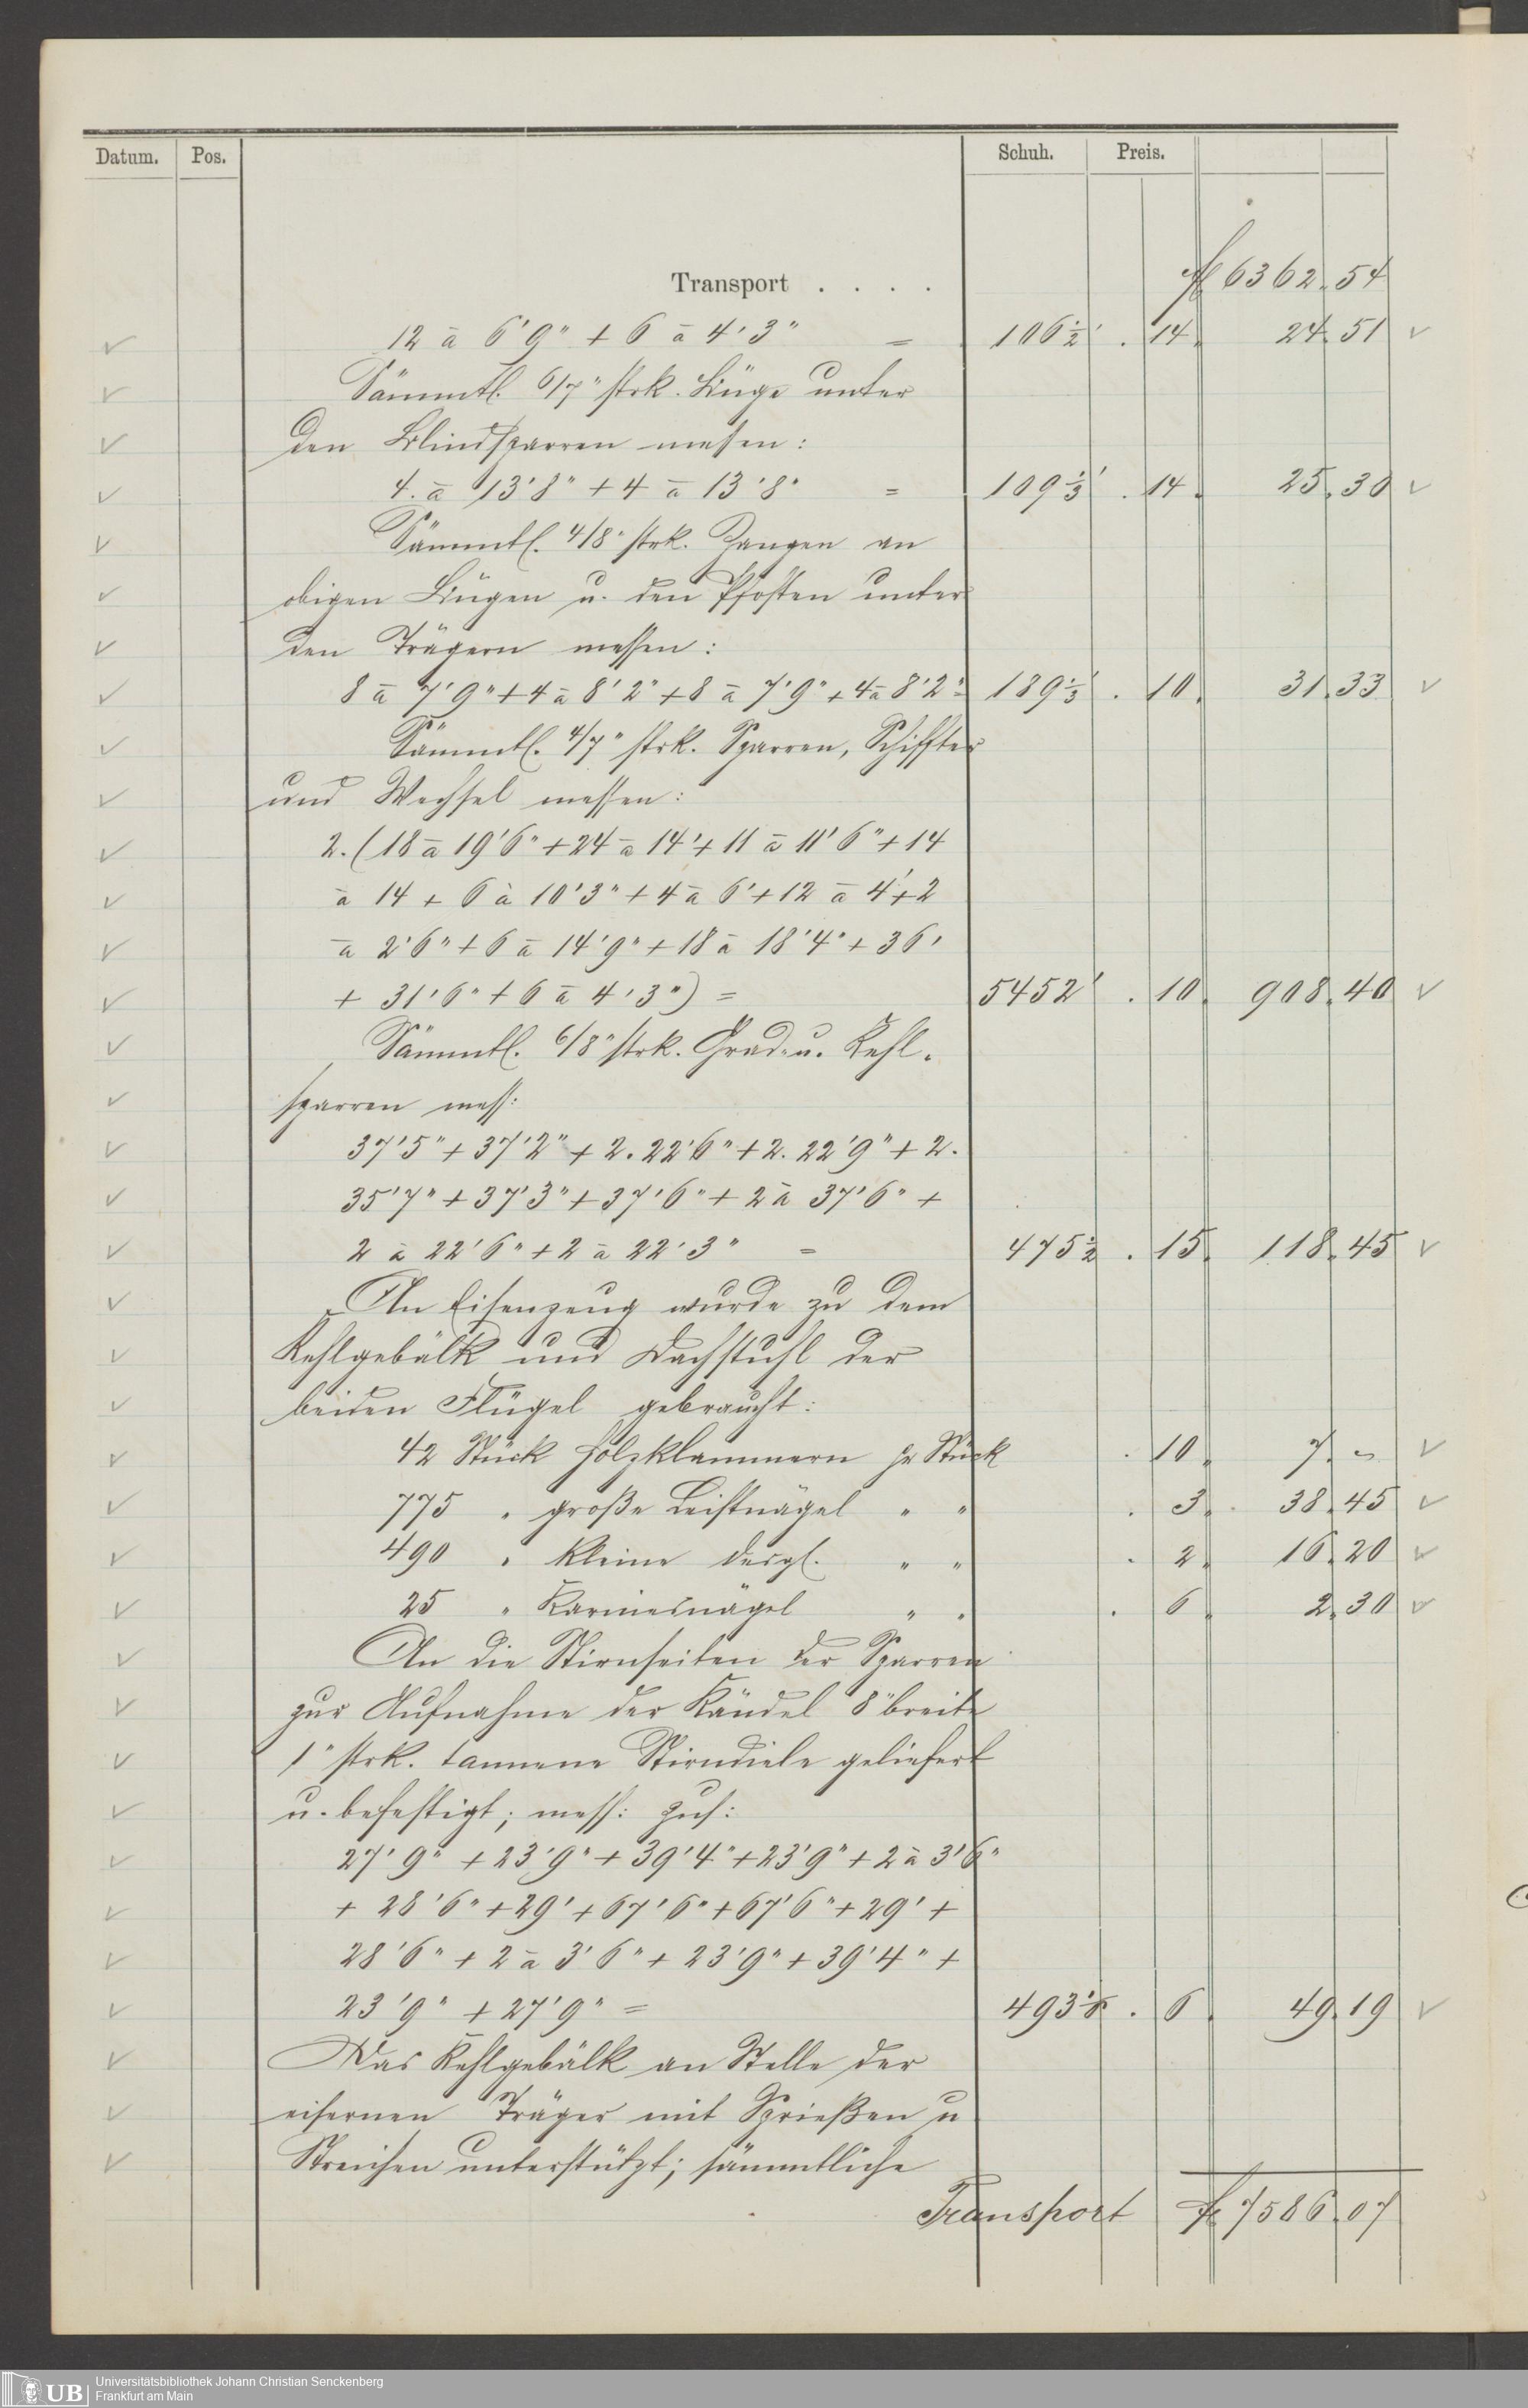 Datum. Pos. Schuh. Preis.
Transport . . . . fl 6362. 54
12 à 6'9" + 6 à 4'3" = 106½' . 14. 24. 51
Sämmtl. 6/7" strk. Büge unter
den Blindsparren messen:
4. à 13'8" + 4 à 13'8" = 109⅓' . 14. 25. 30
Sämmtl. 4/8" strk. Zangen an
obigen Bügen u. den Pfosten unter
den Trägern messen:
8 à 7'9" + 4 à 8'2" + 8 à 7'9" + 4 à 8'2" = 189⅓' . 10. 31. 33
Sämmtl. 4/7" strk. Sparren, Schiffter
und Wechsel messen:
2. (18 à 19'6" + 24 à 14' + 11 à 11'6" + 14
à 14 + 6 à 10'3" + 4 à 6' + 12 à 4' + 2
à 2'6" + 6 à 14'9" + 18 à 18'4" + 36'
+ 31'6" + 6 à 4'3") = 5452' . 10. 908. 40
Sämmtl. 6/8" strk. Grad- u. Kehl-
sparren mess:
37'5" + 37'2" + 2. 22'6" + 2. 22'9" + 2.
35'7" + 37'3" + 37'6" + 2 à 37'6" +
2 à 22'6" + 2 à 22'3" = 475½ . 15. 118. 45
An Eisenzeug wurde zu dem
Kehlgebälk und Dachstuhl der
beiden Flügel gebraucht:
42 Stück Holzklammern pr Stück . 10. 7. -
775 " große Leistnägel " " . 3. 38. 45
490 " kleine desgl. " " . 2. 16. 20
25 " Karniesnägel " " . 6. 2. 30
An die Stirnseiten der Sparren
zur Aufnahme der Kändel 8" breite
1" strk. tannene Stirndiele geliefert
u. befestigt; mess: zus:
27'9" + 23'9" + 39'4" + 23'9" + 2 à 3'6"
+ 28'6" + 29' + 67'6" + 67'6" + 29' +
28'6" + 2 à 3'6" + 23'9" + 39'4" +
23'9" + 27'9" = 493⅙ . 6. 49. 19
Das Kehlgebälk an Stelle der
eisernen Träger mit Sprießen u
Streichen unterstützt; sämmtliche
Transport fl 7586. 07
UB
Universitätsbibliothek Johann Christian Senckenberg
Frankfurt am Main